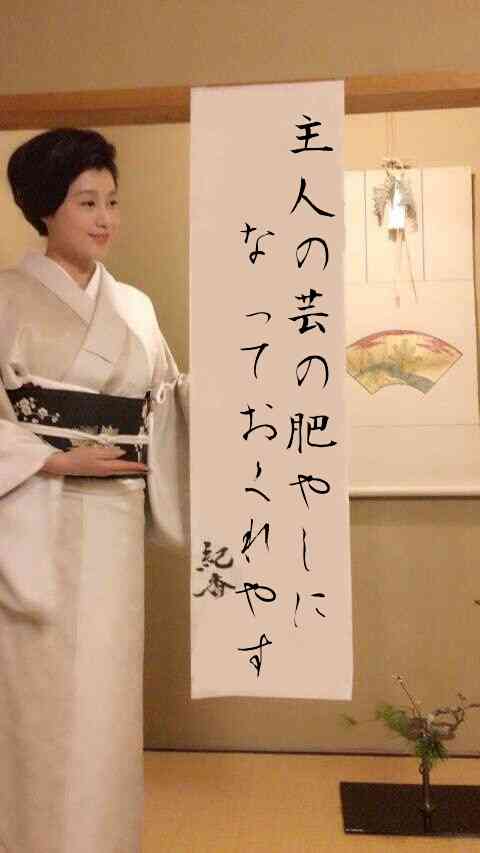 主人の芸の肥やしに
なっておくれやす
紀香